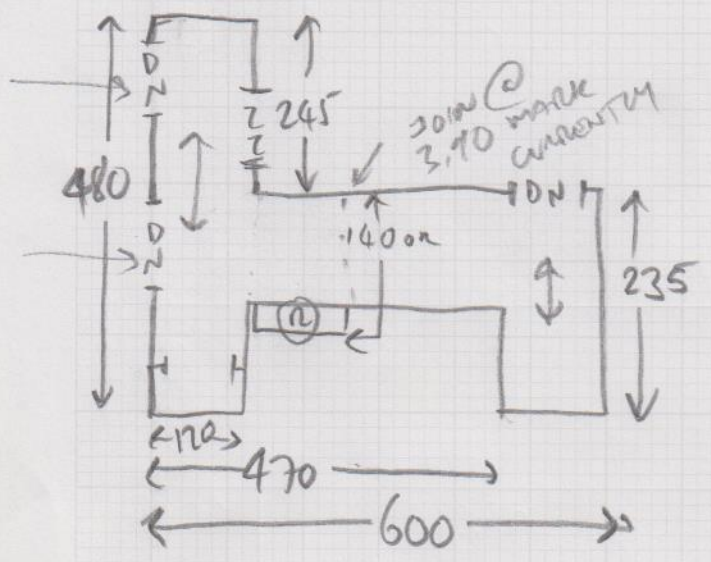 DN
245
JOIN @
3.90 MARK
CURRENTLY
480
DN
DN
140 or
235
R
120
470
600